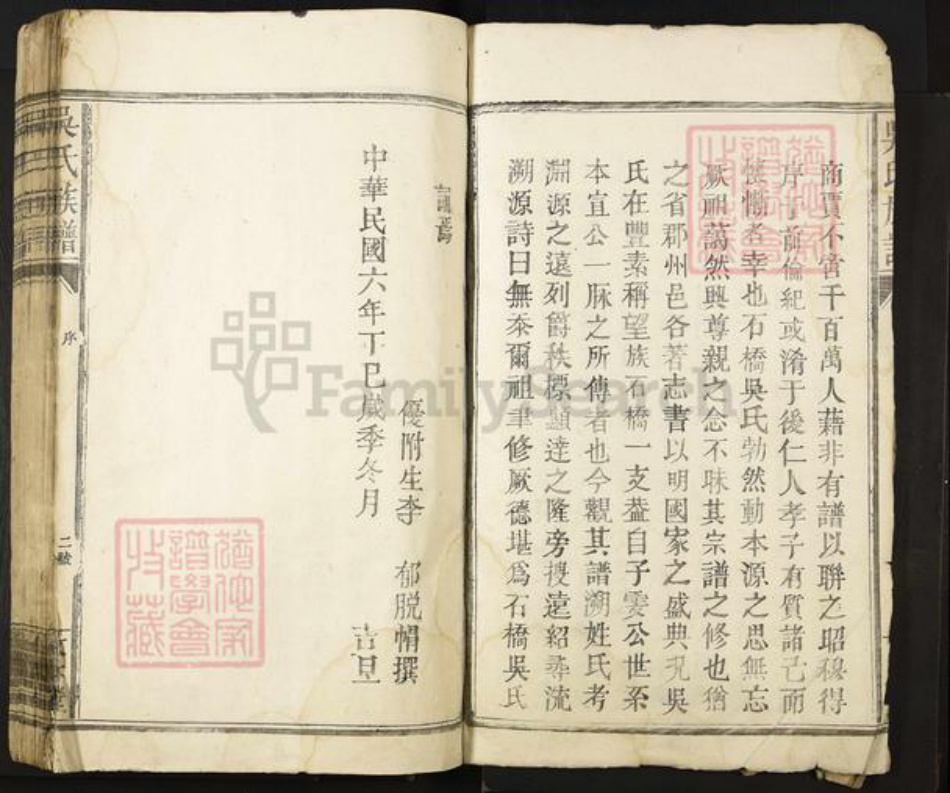 商賈不啻千百萬人藉非有譜以聯之昭穆得
序于前倫紀或淆于後仁人孝子有質諸己而
慚者幸也石橋吳氏勃然動本源之思無忘
厥祖藹然興尊親之念不昧其宗譜之修也猶
之省郡州邑各著志書以明國家之盛典况吳
氏在豐素稱望族石橋一支葢自子雯公世系
本宜公一脉之所傳者也今觀其譜溯姓氏考
淵源之遠列爵秩標顯達之隆旁搜遠紹尋流
溯源詩曰無忝爾祖聿修厥德堪為石橋吳氏
焉
優附生李 郁脫帽撰
中華民國六年丁巳歲季冬月 吉旦
吳氏族譜
序
二號
FamilySearch
譜學會
收藏